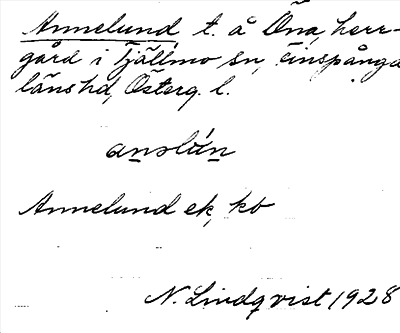 Annelund t. å Öna, herr-
gård i Tjällmo sn, Finspånga
läns hd, Österg. l.
Annelund ek, kb
N. Lindqvist 1928